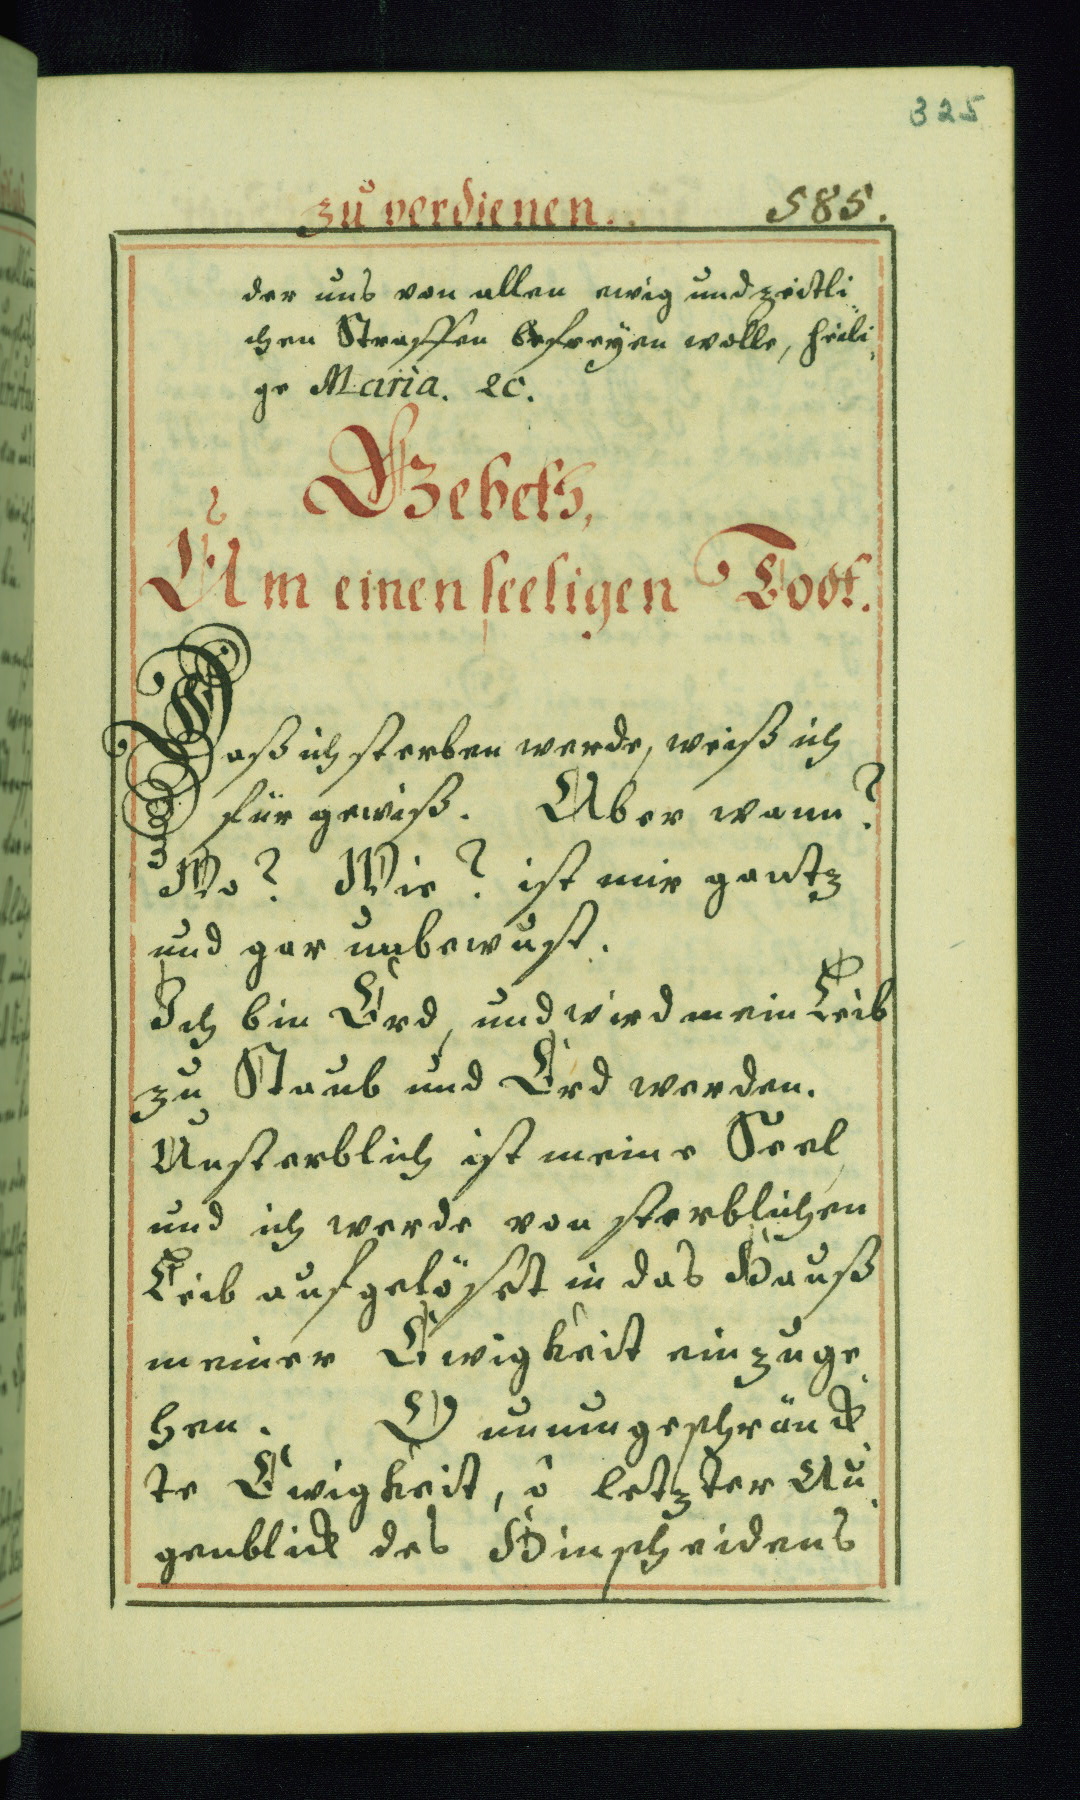 325
zu verdienen. 585.
der uns von allen ewig und zeitli
chen Straffen befreyen wolle, heili
ge Maria. ec.
Gebeth,
Um einen seeligen Todt.
Daß ich sterben werde, weiß ich
für gewiß. Aber wann?
Wo? Wie? ist mir gantz
und gar unbewust.
Ich bin Erd, und wird mein Leib
zu Staub und Erd werden.
Unsterblich ist meine Seel
und ich werde von sterblichen
Leib aufgelöset in das Hauß
meiner Ewigkeit einzuge
hen. O unumgeschränck
te Ewigkeit, ô letzter Au
genblick des Hinscheidens